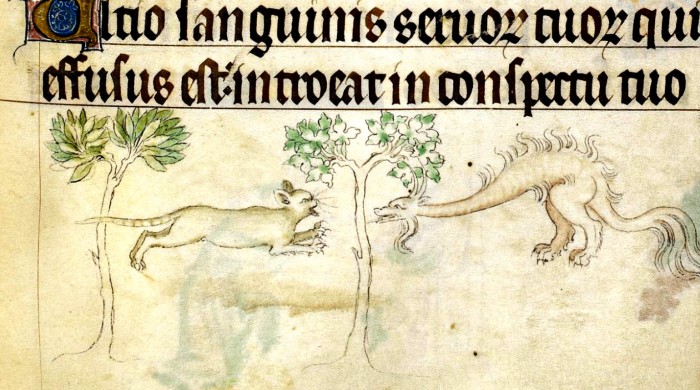 Ultio sanguinis seruoꝝ tuoꝝ qui
effusus est: introeat in conspectu tuo